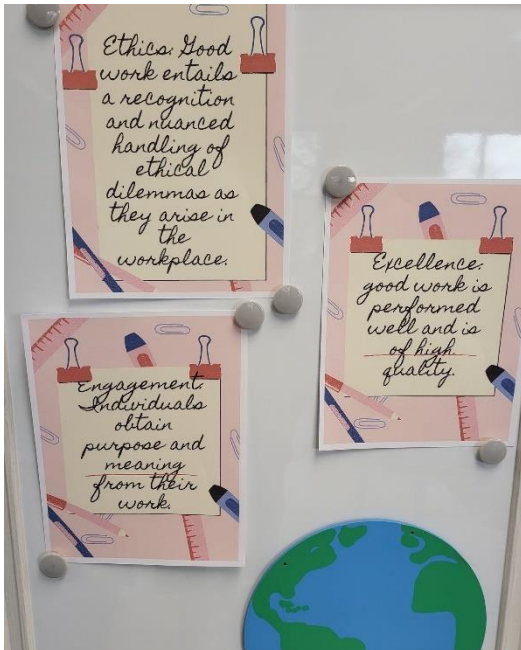 Ethics: Good
work entails
a recognition
and nuanced
handling of
ethical
dilemmas as
they arise in
the
workplace.
Excellence:
good work is
performed
well and is
of high
quality.
Engagement:
Individuals
obtain
purpose and
meaning
from their
work.